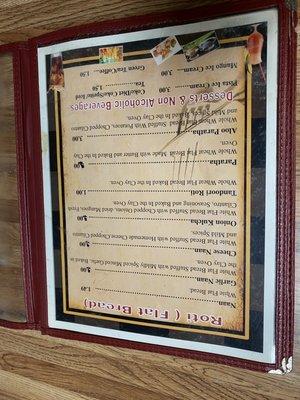 Roti ( Flat Bread)
Naan 1.49
White Flat Bread
Garlic Naan
White Flat Bread Stuffed with Mildly Spiced Minced Garlic, Baked in
the Clay Oven.
Cheese Naan
White Flat Bread Stuffed with Homemade Cheese Chopped Cilantro
and Mild Spices.
Onion Kulcha
White Flat Bread Stuffed with Chopped Onions, dried Mangoes, Fresh
Cilantro, Seasoning and Baked in the Clay Oven.
Tandoori Roti 1.00
Whole Wheat Flat Bread and Baked in the Clay Oven.
Paratha
Whole Wheat Flat Bread Made with Butter and Baked in the Clay
Oven.
Aloo Paratha 3.00
Whole Wheat Flat Bread Stuffed with Potatoes, Chopped Cilantro
and Mild Spices Baked in the Clay Oven.
Desserts & Non Alcoholic Beverages
Pista Ice Cream 3.00
Mango Ice Cream 3.00
Tea 1.50
Coke/Diet Coke/Sprite/Iced
Green Tea/Coffee 1.50